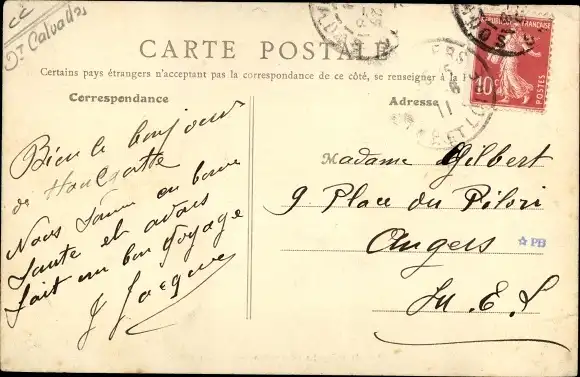 Dt Calvados
CARTE POSTALE
Certains pays étrangers n'acceptant pas la correspondance de ce côté, se renseigner à la P
Correspondance
Adresse
Bien le bonjour
de
Nous somm en bonne
Sante et avons
fait un bon voyage
J Jacque
RÉPUBLIQUE FRANÇAISE
10
POSTES
11
ET L
Madame Gilbert
9 Place du Pilori
Angers
M. E. L
☆PB